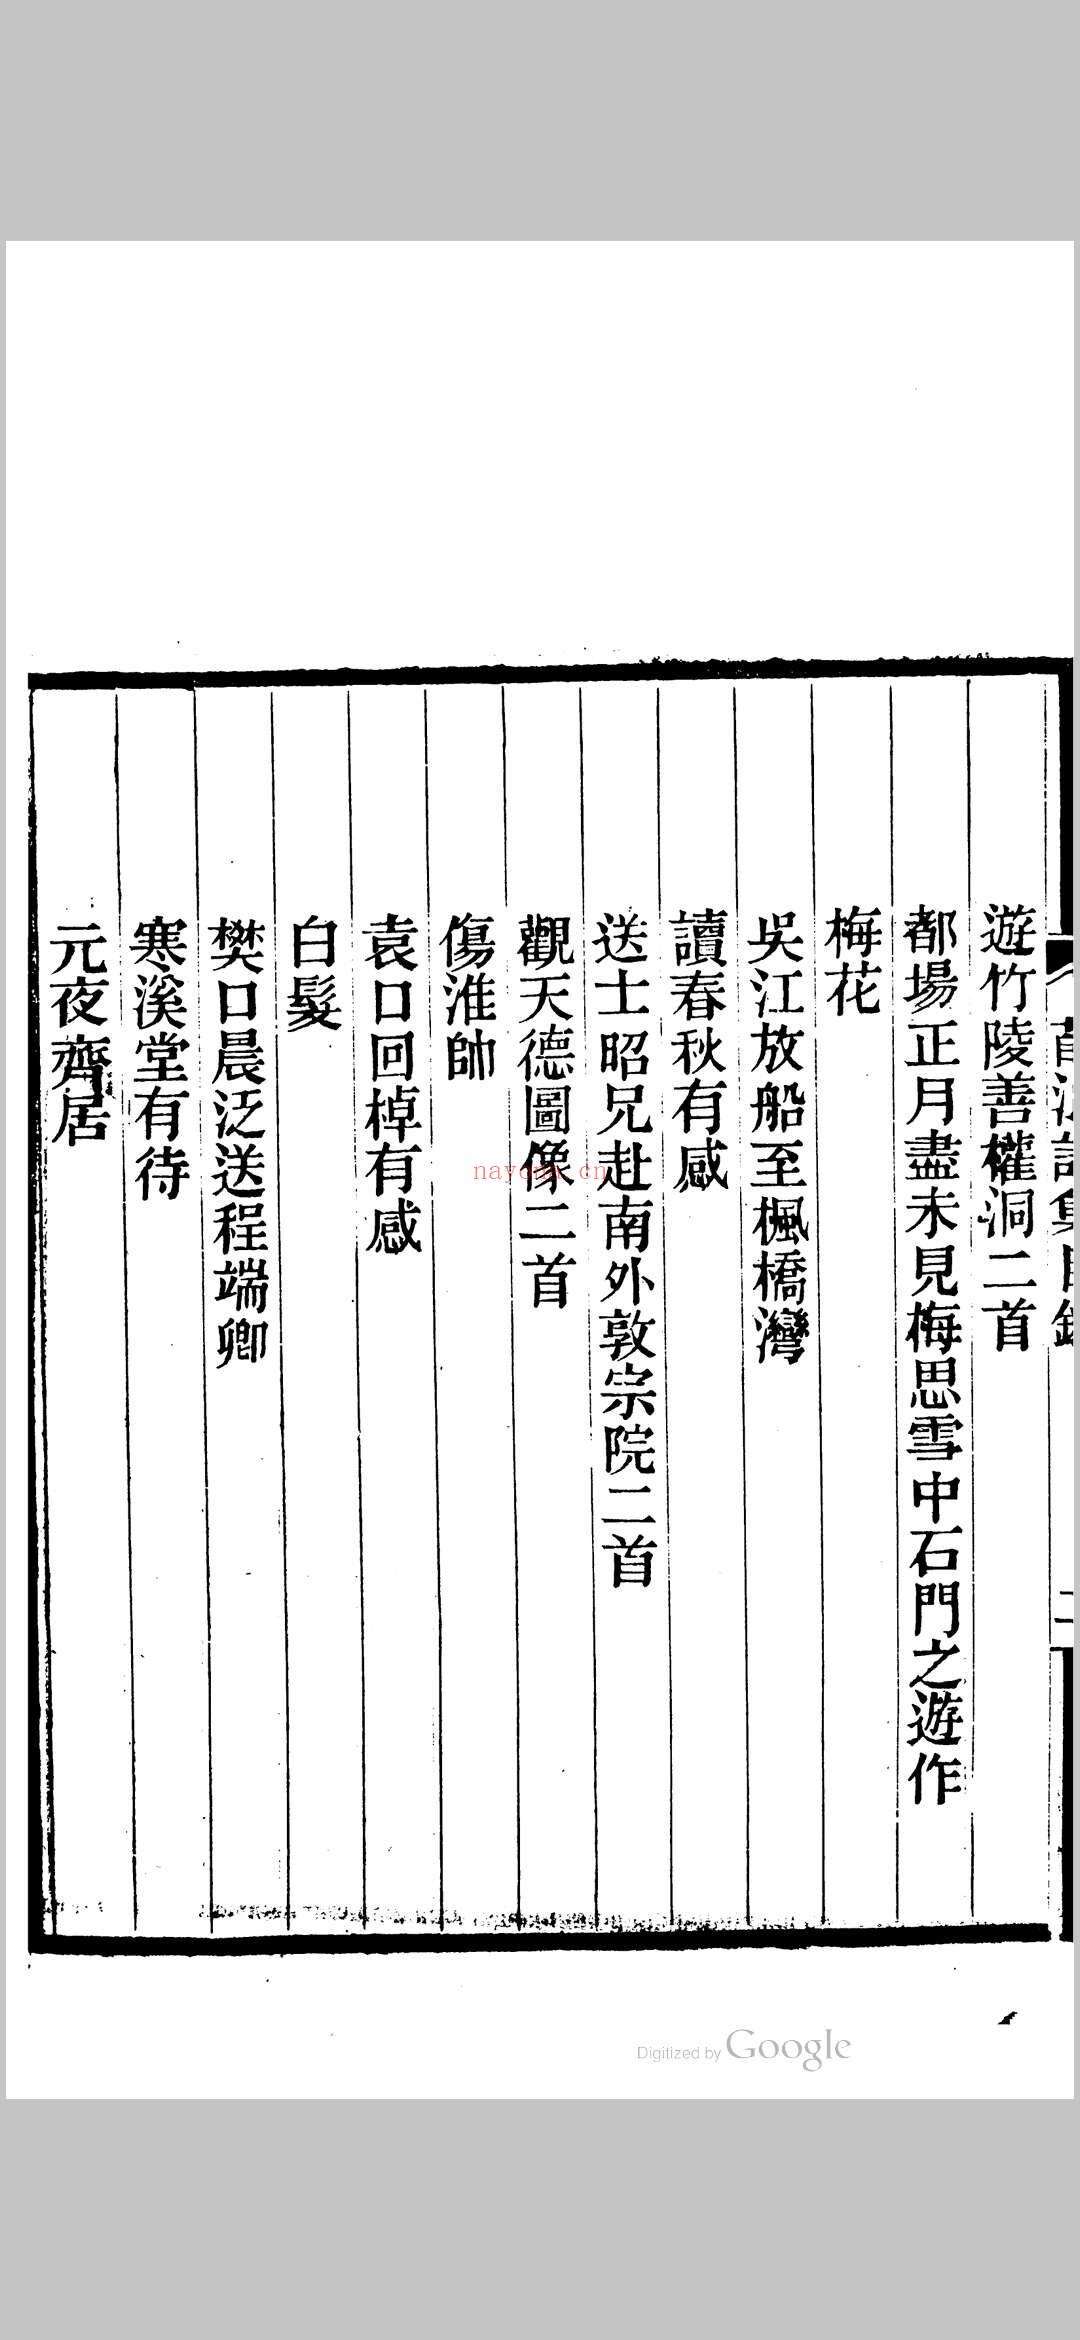 遊竹陵善權洞二首
都場正月盡未見梅思雪中石門之遊作
梅花
吳江放船至楓橋灣
讀春秋有感
送士昭兄赴南外敦宗院二首
觀天德圖像二首
傷淮帥
袁口回棹有感
白髮
樊口晨泛送程端卿
寒溪堂有待
元夜齊居
nayona.cn
Digitized by Google